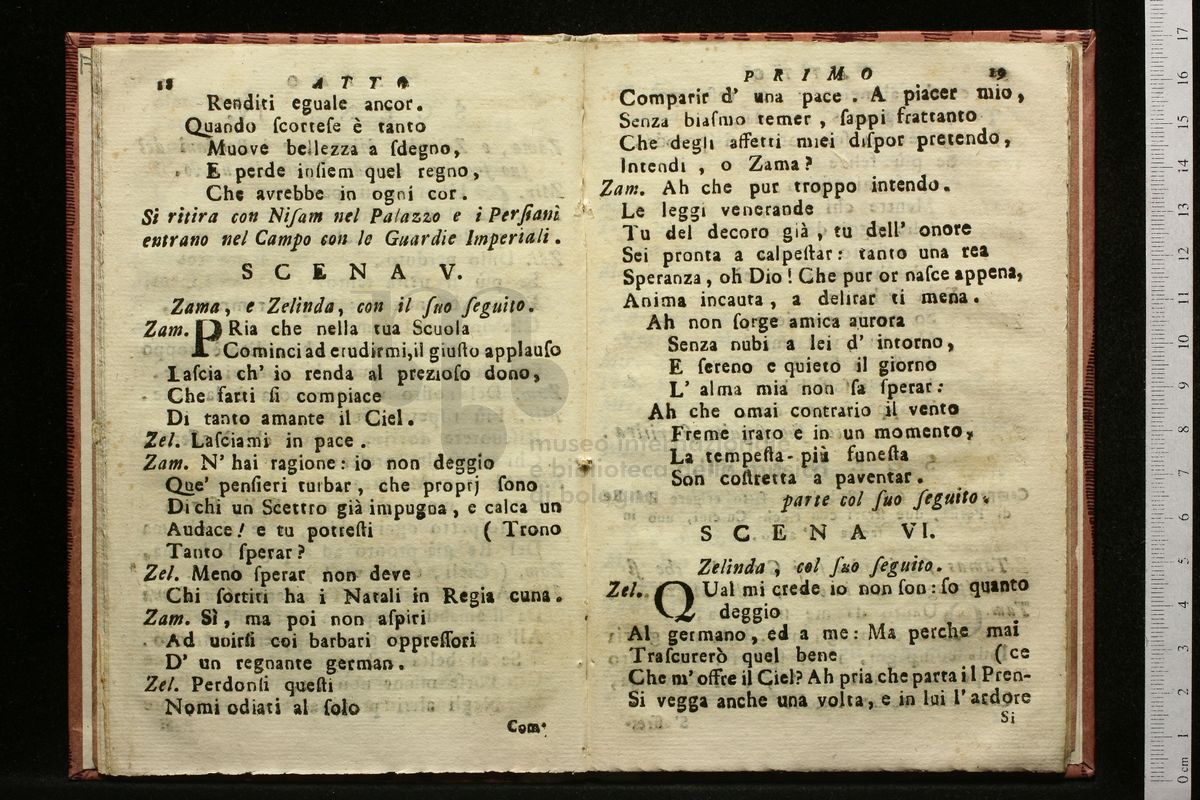 18 ATTO
Renditi eguale ancor.
Quando ſcorteſe è tanto
Muove bellezza a ſdegno,
E perde inſiem quel regno,
Che avrebbe in ogni cor.
Si ritira con Niſam nel Palazzo e i Perſiani
entrano nel Campo con le Guardie Imperiali.
SCENA V.
Zama, e Zelinda, con il ſuo ſeguito.
Zam. PRia che nella tua Scuola
Cominci ad erudirmi, il giuſto applauſo
Laſcia ch' io renda al prezioſo dono,
Che farti ſi compiace
Di tanto amante il Ciel.
Zel. Laſciami in pace.
Zam. N' hai ragione: io non deggio
Que' penſieri turbar, che proprj ſono
Di chi un Scettro già impugna, e calca un
Audace! e tu potreſti ( Trono
Tanto ſperar?
Zel. Meno ſperar non deve
Chi ſortiti ha i Natali in Regia cuna.
Zam. Sì, ma poi non aſpiri
Ad unirſi coi barbari oppreſſori
D' un regnante german.
Zel. Perdonſi queſti
Nomi odiati al ſolo
Com-
PRIMO 19
Comparir d' una pace. A piacer mio,
Senza biaſmo temer, ſappi frattanto
Che degli affetti miei diſpor pretendo,
Intendi, o Zama?
Zam. Ah che pur troppo intendo.
Le leggi venerande
Tu del decoro già, tu dell' onore
Sei pronta a calpeſtar: tanto una rea
Speranza, oh Dio! Che pur or naſce appena,
Anima incauta, a delirar ti mena.
Ah non ſorge amica aurora
Senza nubi a lei d' intorno,
E ſereno e quieto il giorno
L' alma mia non ſa ſperar:
Ah che omai contrario il vento
Freme irato e in un momento,
La tempeſta più funeſta
Son coſtretta a paventar.
parte col ſuo ſeguito.
SCENA VI.
Zelinda, col ſuo ſeguito.
Zel. QUal mi crede io non ſon: ſo quanto
deggio
Al germano, ed a me: Ma perche mai
Traſcurerò quel bene ( ce
Che m' offre il Ciel? Ah pria che parta il Pren-
Si vegga anche una volta, e in lui l' ardore
Si
museo internazionale
e biblioteca della musica
di bologna
0 cm 1 2 3 4 5 6 7 8 9 10 11 12 13 14 15 16 17